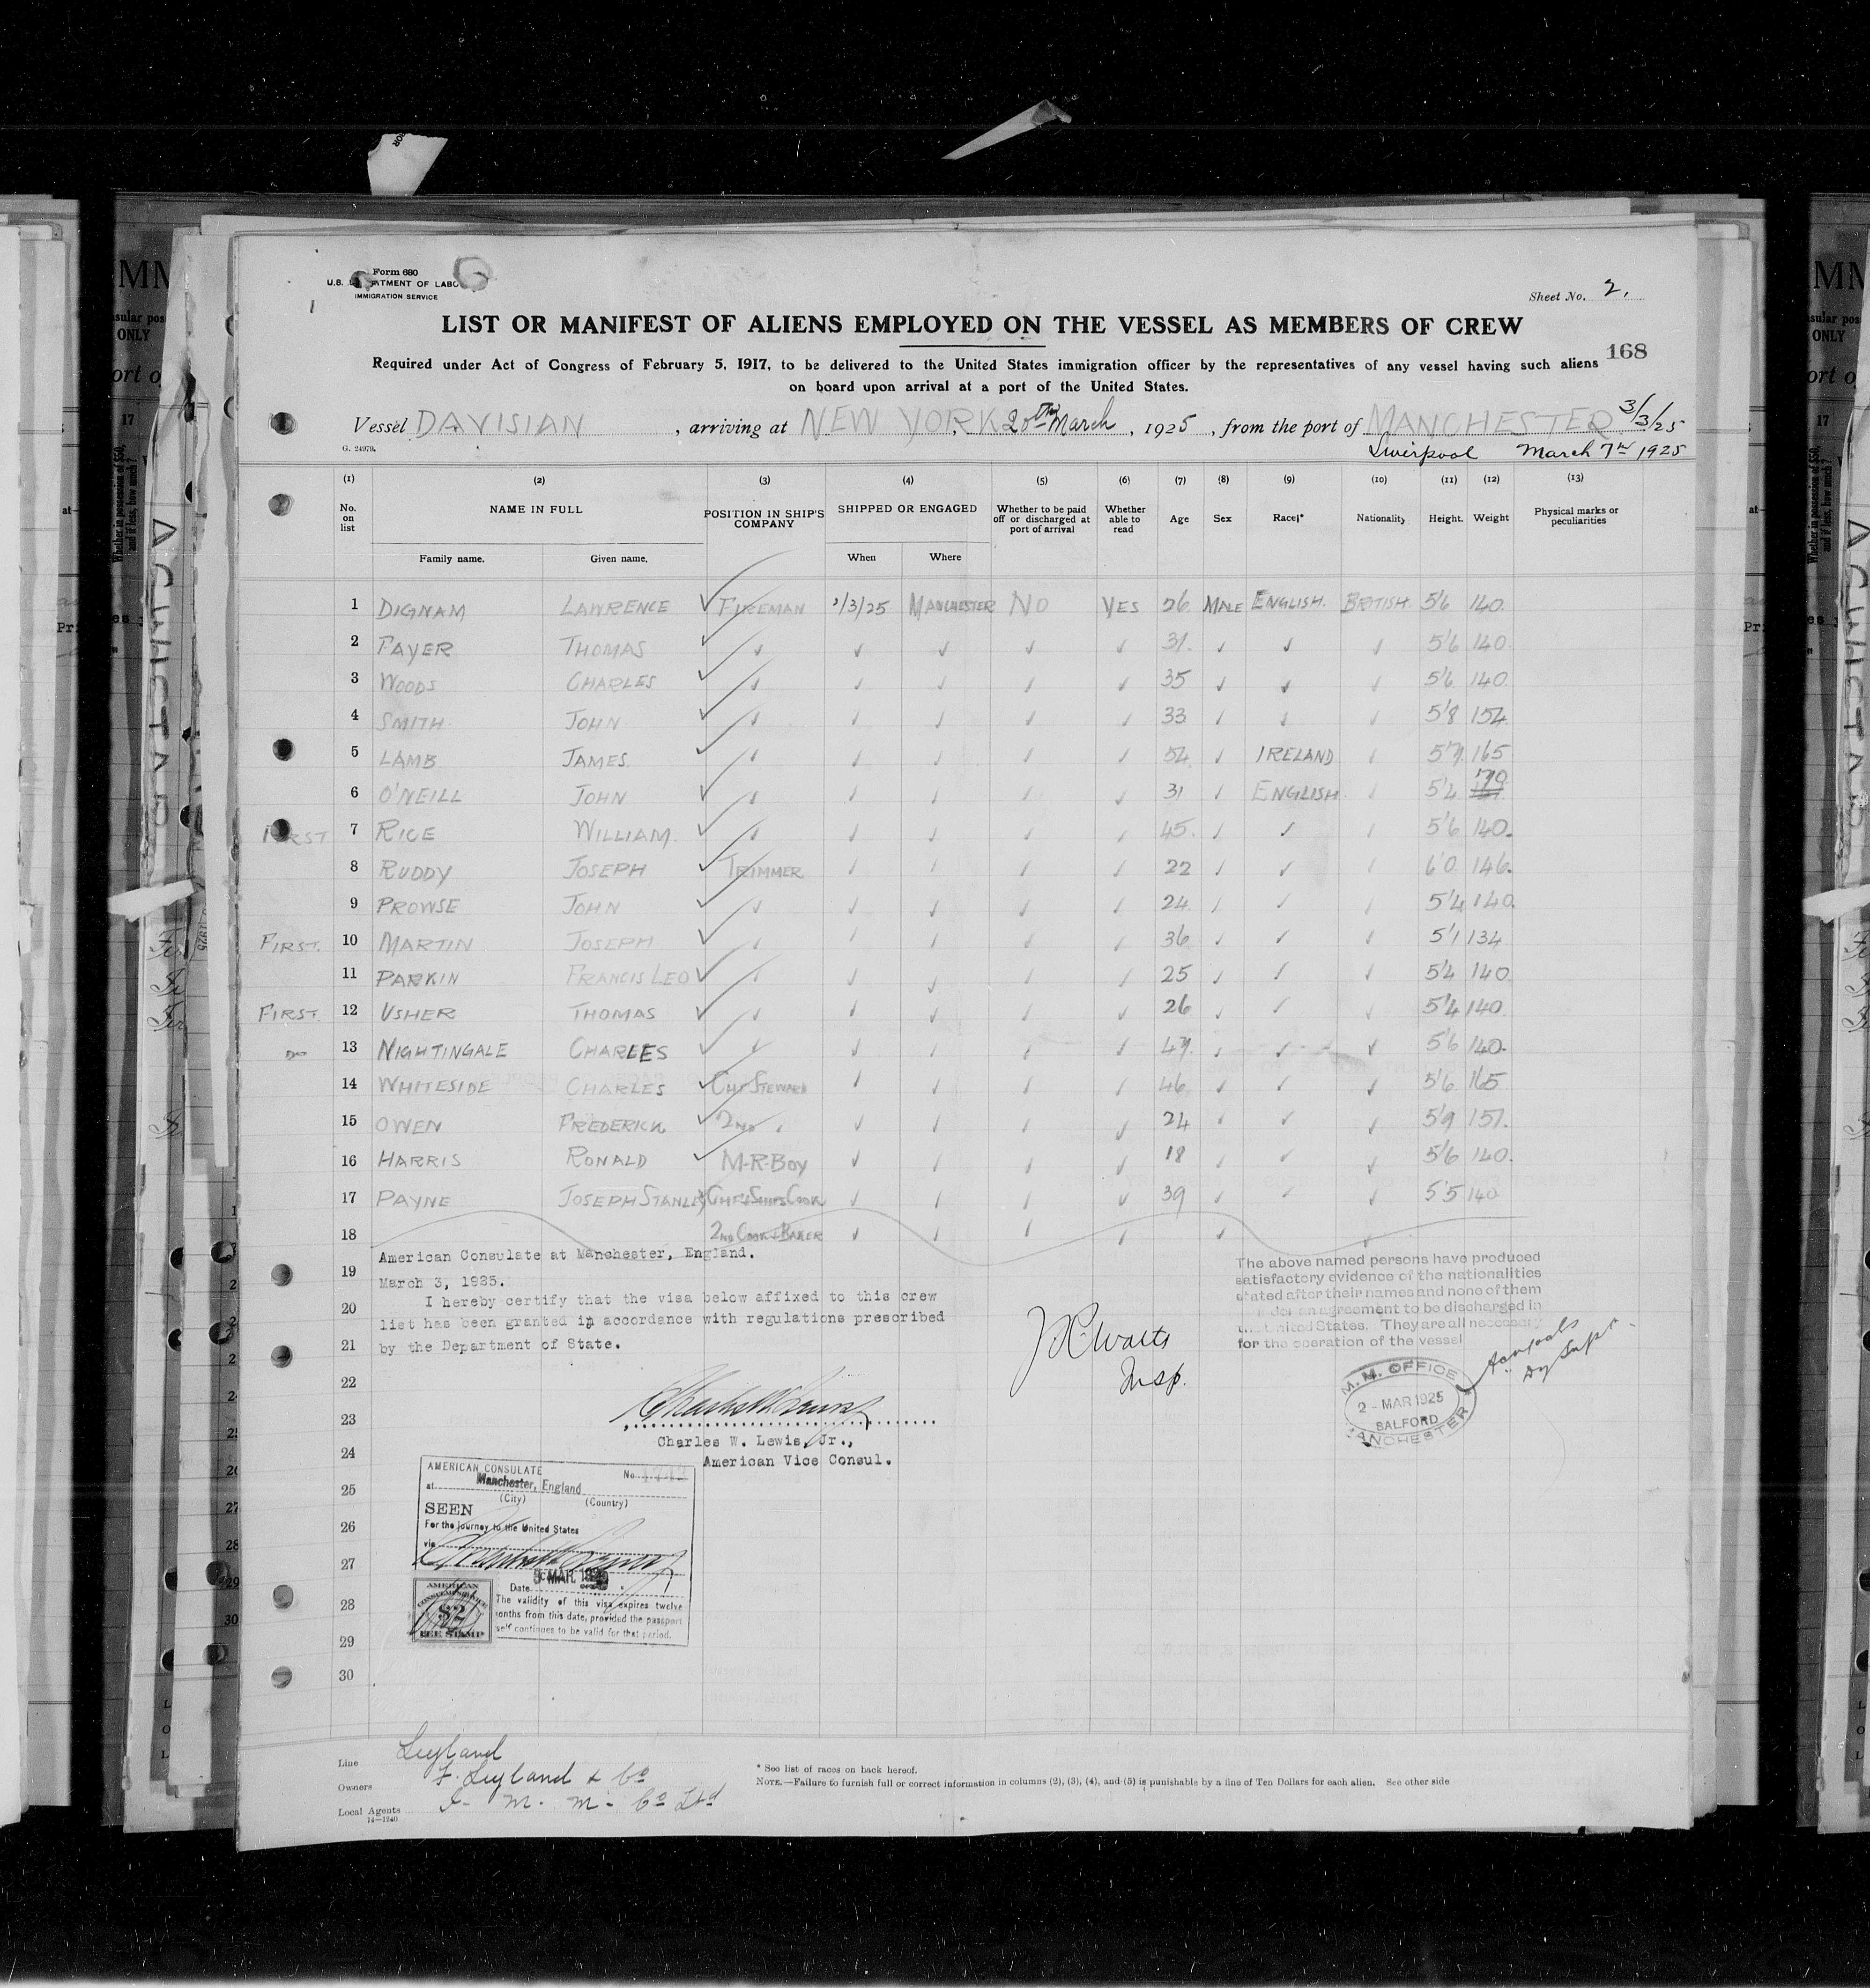 Form 680
U.S. DEPARTMENT OF LABOR
IMMIGRATION SERVICE
Sheet No. 2.
LIST OR MANIFEST OF ALIENS EMPLOYED ON THE VESSEL AS MEMBERS OF CREW
168
Required under Act of Congress of February 5, 1917, to be delivered to the United States immigration officer by the representatives of any vessel having such aliens
on board upon arrival at a port of the United States.
Vessel DAVISIAN, arriving at NEW YORK 20th March, 1925, from the port of MANCHESTER 3/3/25
G. 24979. Liverpool March 7th 1925
(1) (2) (3) (4) (5) (6) (7) (8) (9) (10) (11) (12) (13)
No. on list NAME IN FULL POSITION IN SHIP'S COMPANY SHIPPED OR ENGAGED Whether to be paid off or discharged at port of arrival Whether able to read Age Sex Race* Nationality Height. Weight Physical marks or peculiarities
Family name. Given name. When Where
1 DIGNAM LAWRENCE ✓ FIREMAN 2/3/25 MANCHESTER NO YES 26 MALE ENGLISH. BRITISH. 5'6 140.
2 FAYER THOMAS ✓ ✓ ✓ ✓ ✓ ✓ 31. ✓ ✓ ✓ 5'6 140.
3 WOODS CHARLES ✓ ✓ ✓ ✓ ✓ ✓ 35 ✓ ✓ ✓ 5'6 140.
4 SMITH JOHN ✓ ✓ ✓ ✓ ✓ ✓ 33 ✓ ✓ ✓ 5'8 154.
5 LAMB JAMES. ✓ ✓ ✓ ✓ ✓ ✓ 54 ✓ IRELAND ✓ 5'7 165
6 O'NEILL JOHN ✓ ✓ ✓ ✓ ✓ ✓ 31 ✓ ENGLISH ✓ 5'4 170
FIRST 7 RICE WILLIAM. ✓ ✓ ✓ ✓ ✓ ✓ 45. ✓ ✓ ✓ 5'6 140.
8 RUDDY JOSEPH ✓ TRIMMER ✓ ✓ ✓ ✓ 22 ✓ ✓ ✓ 6'0 146.
9 PROWSE JOHN ✓ ✓ ✓ ✓ ✓ ✓ 24 ✓ ✓ ✓ 5'4 140.
FIRST. 10 MARTIN JOSEPH ✓ ✓ ✓ ✓ ✓ ✓ 36 ✓ ✓ ✓ 5'1 134
11 PARKIN FRANCIS LEO ✓ ✓ ✓ ✓ ✓ ✓ 25 ✓ ✓ ✓ 5'4 140
FIRST. 12 USHER THOMAS ✓ ✓ ✓ ✓ ✓ ✓ 26 ✓ ✓ ✓ 5'4 140.
DO 13 NIGHTINGALE CHARLES ✓ ✓ ✓ ✓ ✓ ✓ 47. ✓ ✓ ✓ 5'6 140.
14 WHITESIDE CHARLES ✓ CHF STEWARD ✓ ✓ ✓ ✓ 46 ✓ ✓ ✓ 5'6 165
15 OWEN FREDERICK ✓ 2ND ✓ ✓ ✓ ✓ ✓ 24 ✓ ✓ ✓ 5'9 151.
16 HARRIS RONALD ✓ M-R-BOY ✓ ✓ ✓ ✓ 18 ✓ ✓ ✓ 5'6 140.
17 PAYNE JOSEPH STANLEY CHF SHIPS COOK ✓ ✓ ✓ ✓ 39 ✓ ✓ ✓ 5'5 140
18 2ND COOK & BAKER ✓ ✓ ✓ ✓ ✓ ✓
19
20
21
22
23
24
25
26
27
28
29
30
American Consulate at Manchester, England.
March 3, 1925.
I hereby certify that the visa below affixed to this crew
list has been granted in accordance with regulations prescribed
by the Department of State.
Charles W. Lewis, Jr.,
American Vice Consul.
Insp.
The above named persons have produced
satisfactory evidence of the nationalities
stated after their names and none of them
under an agreement to be discharged in
the United States. They are all necessary
for the operation of the vessel
M. M. OFFICE
2 - MAR 1925
SALFORD
MANCHESTER
AMERICAN CONSULATE No.
at Manchester, England
(City) (Country)
SEEN
For the journey to the United States
via
Date MAR.
The validity of this visa expires twelve
months from this date, provided the passport
self continues to be valid for that period.
AMERICAN
$2
FEE STAMP
Line Leyland
Owners F. Leyland & Co
Local Agents I. M. M. Co Ltd
14—1240
* See list of races on back hereof.
NOTE.—Failure to furnish full or correct information in columns (2), (3), (4), and (5) is punishable by a fine of Ten Dollars for each alien. See other side